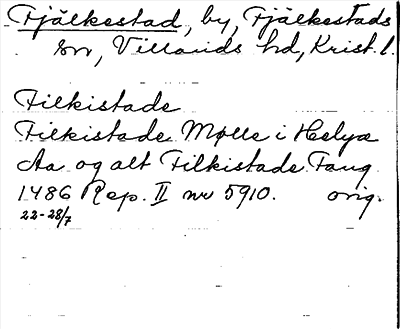 Fjälkestad, by, Fjälkestads
sn, Villands hd, Krist. l.
Filkistade
Filkistade Mølle i Helyæ
Aa og alt Filkistade Fang
1486 Rep. II nr 5910. orig.
22-28/7